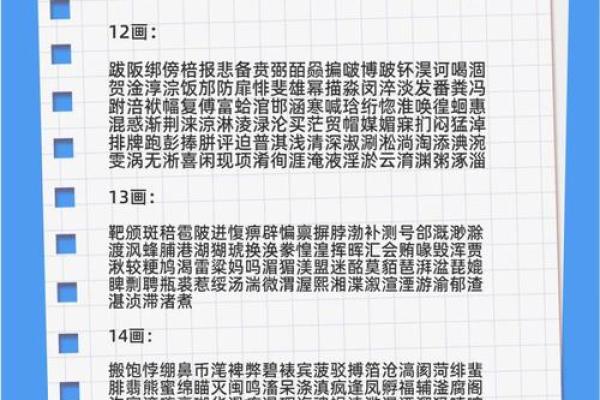 12画：
跋阪绑傍棓报悲备贲弼皕赑揙皱博跛钚淏诃喝涸
贺淦淳淙饭邡防扉悱斐雄幂描淼闵淬淡发番粪冯
跗涪袱幅复傅富蛤涫邯涵寒喊琀绗惚淮唤徨蛔惠
混惑渐荆涞凉淋淩渌沦买茫贸帽媒媚寐扪闷猛淖
排牌跑彭捧胼评迫普淇浅清深淑涮淞淌淘添淟涴
雯涡无淅喜闲现项淆徇涯淹液淫淤云淯渊粥涿淄
13画：
靶颁斑稖雹陂迸愎痹辟惼禀摒脖渤补测号郃溉渺滁
渡沨蜂脯港湖猢琥换涣豢惶湟挥晖汇会贿喙毁浑贾
湫较粳鸠渴雷粱妈吗湄猸渼盟迷酩莫貊琶湃湓琵媲
睥剽聘瓶裘惹绥汤湍微渭渥熙湘渫溆渲湮游渝郁渣
湛浈滞渚煮
14画：
搬饱悖绷鼻币滗裨弊碧裱宾菠驳搏箔沧滈阂菏绯蜚
腓翡熊蜜绵瞄灭闽鸣潘呆涤滇疯逢凤孵福辅滏腐阁